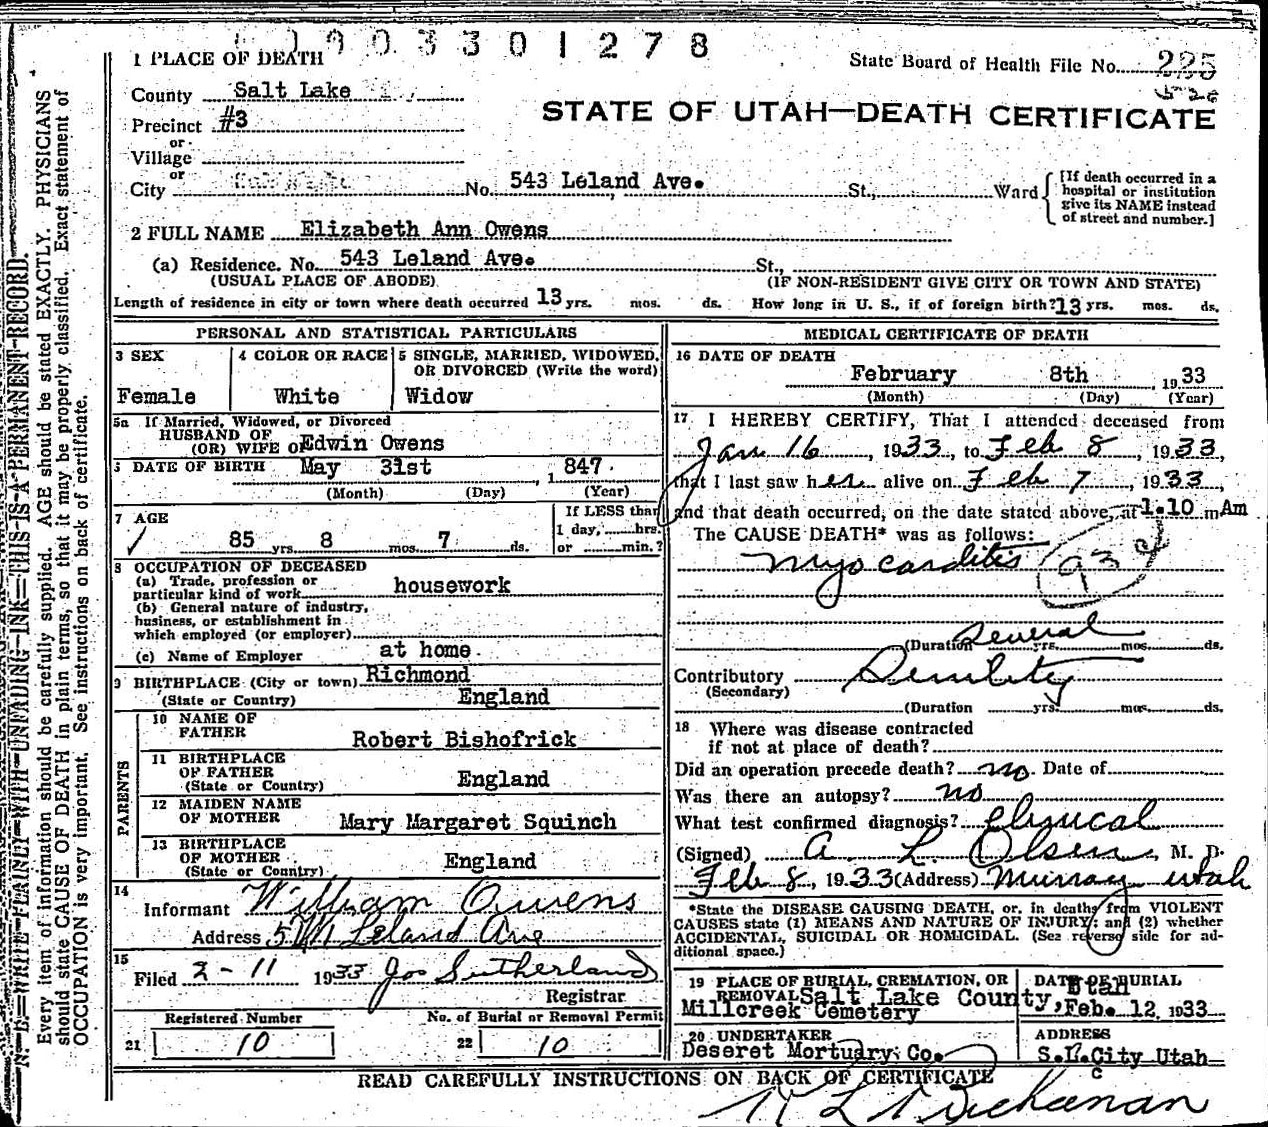 1903301278
1 PLACE OF DEATH
State Board of Health File No. 225
County Salt Lake
STATE OF UTAH—DEATH CERTIFICATE
Precinct #3
or
Village
or
City No. 543 Leland Ave. St., Ward
[If death occurred in a
hospital or institution
give its NAME instead
of street and number.]
2 FULL NAME Elizabeth Ann Owens
(a) Residence. No. 543 Leland Ave. St.,
(USUAL PLACE OF ABODE) (IF NON-RESIDENT GIVE CITY OR TOWN AND STATE)
Length of residence in city or town where death occurred 13 yrs. mos. ds. How long in U. S., if of foreign birth? 13 yrs. mos. ds.
PERSONAL AND STATISTICAL PARTICULARS
3 SEX
Female
4 COLOR OR RACE
White
5 SINGLE, MARRIED, WIDOWED,
OR DIVORCED (Write the word)
Widow
5a If Married, Widowed, or Divorced
HUSBAND OF
(OR) WIFE OF Edwin Owens
6 DATE OF BIRTH May 31st, 1847
(Month) (Day) (Year)
7 AGE
85 yrs. 8 mos. 7 ds.
If LESS than
1 day, hrs.
or min.?
8 OCCUPATION OF DECEASED
(a) Trade, profession or
particular kind of work housework
(b) General nature of industry,
business, or establishment in
which employed (or employer)
(c) Name of Employer at home
9 BIRTHPLACE (City or town) Richmond
(State or Country) England
PARENTS
10 NAME OF
FATHER Robert Bishofrick
11 BIRTHPLACE
OF FATHER
(State or Country) England
12 MAIDEN NAME
OF MOTHER Mary Margaret Squinch
13 BIRTHPLACE
OF MOTHER
(State or Country) England
14
Informant William Owens
Address Leland Ave
15
Filed 2-11 1933 Jos Sutherland
Registrar
Registered Number
21 10
No. of Burial or Removal Permit
22 10
MEDICAL CERTIFICATE OF DEATH
16 DATE OF DEATH
February 8th, 1933
(Month) (Day) (Year)
17 I HEREBY CERTIFY, That I attended deceased from
Jan 16, 1933, to Feb 8, 1933,
that I last saw her alive on Feb 7, 1933,
and that death occurred, on the date stated above, at 1.10 m Am
The CAUSE DEATH* was as follows:
Myocarditis 93c
(Duration several yrs. mos. ds.
Contributory Senility
(Secondary)
(Duration yrs. mos. ds.
18 Where was disease contracted
if not at place of death?
Did an operation precede death? no. Date of
Was there an autopsy? no
What test confirmed diagnosis? clinical
(Signed) A L. Olsen, M. D.
Feb 8, 1933 (Address) Murray utah
*State the DISEASE CAUSING DEATH, or, in deaths from VIOLENT
CAUSES state (1) MEANS AND NATURE OF INJURY; and (2) whether
ACCIDENTAL, SUICIDAL OR HOMICIDAL. (See reverse side for ad-
ditional space.)
19 PLACE OF BURIAL, CREMATION, OR
REMOVAL Salt Lake County, Utah
Millcreek Cemetery
DATE OF BURIAL
Feb. 12, 1933
20 UNDERTAKER
Deseret Mortuary Co.
ADDRESS
S.L.City Utah
READ CAREFULLY INSTRUCTIONS ON BACK OF CERTIFICATE
Buchanan
N. B.—WRITE PLAINLY WITH UNFADING INK—THIS IS A PERMANENT RECORD.
Every item of information should be carefully supplied. AGE should be stated EXACTLY. PHYSICIANS
should state CAUSE OF DEATH in plain terms, so that it may be properly classified. Exact statement of
OCCUPATION is very important. See instructions on back of certificate.